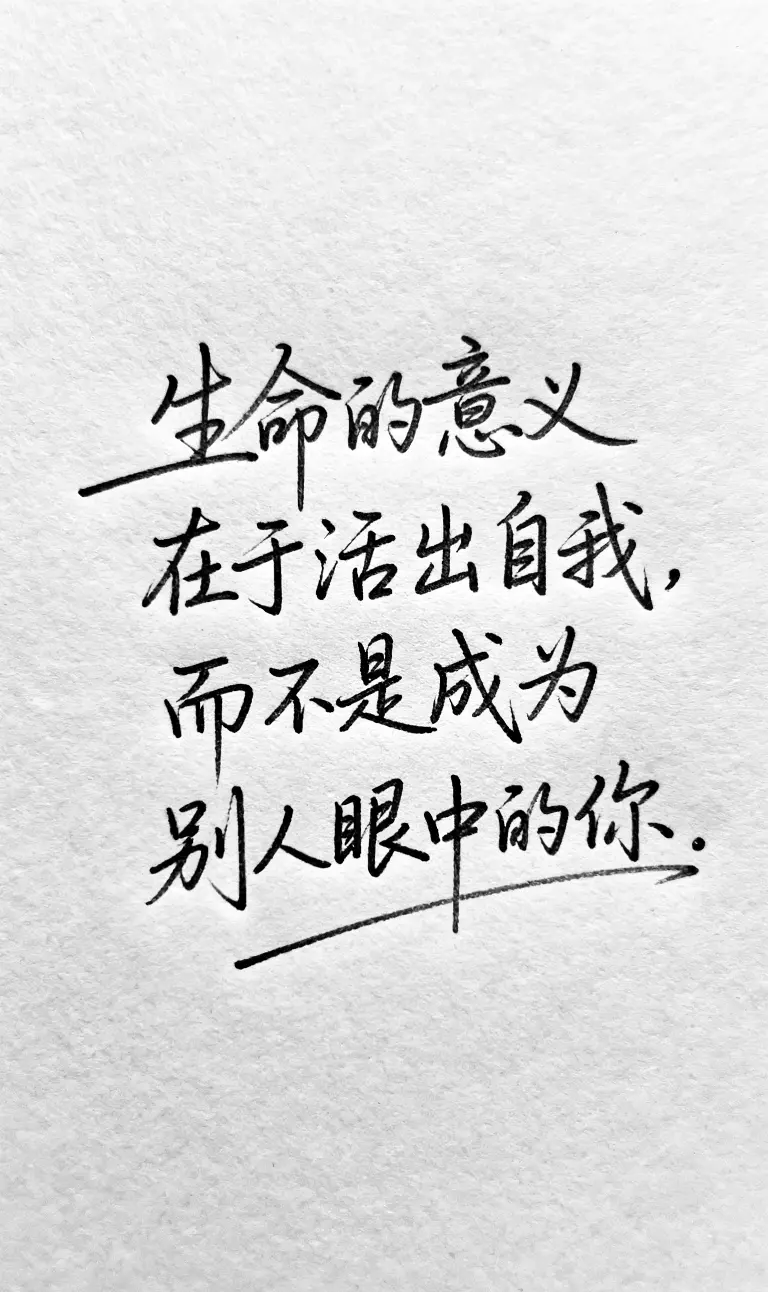 生命的意义
在于活出自我,
而不是成为
别人眼中的你.